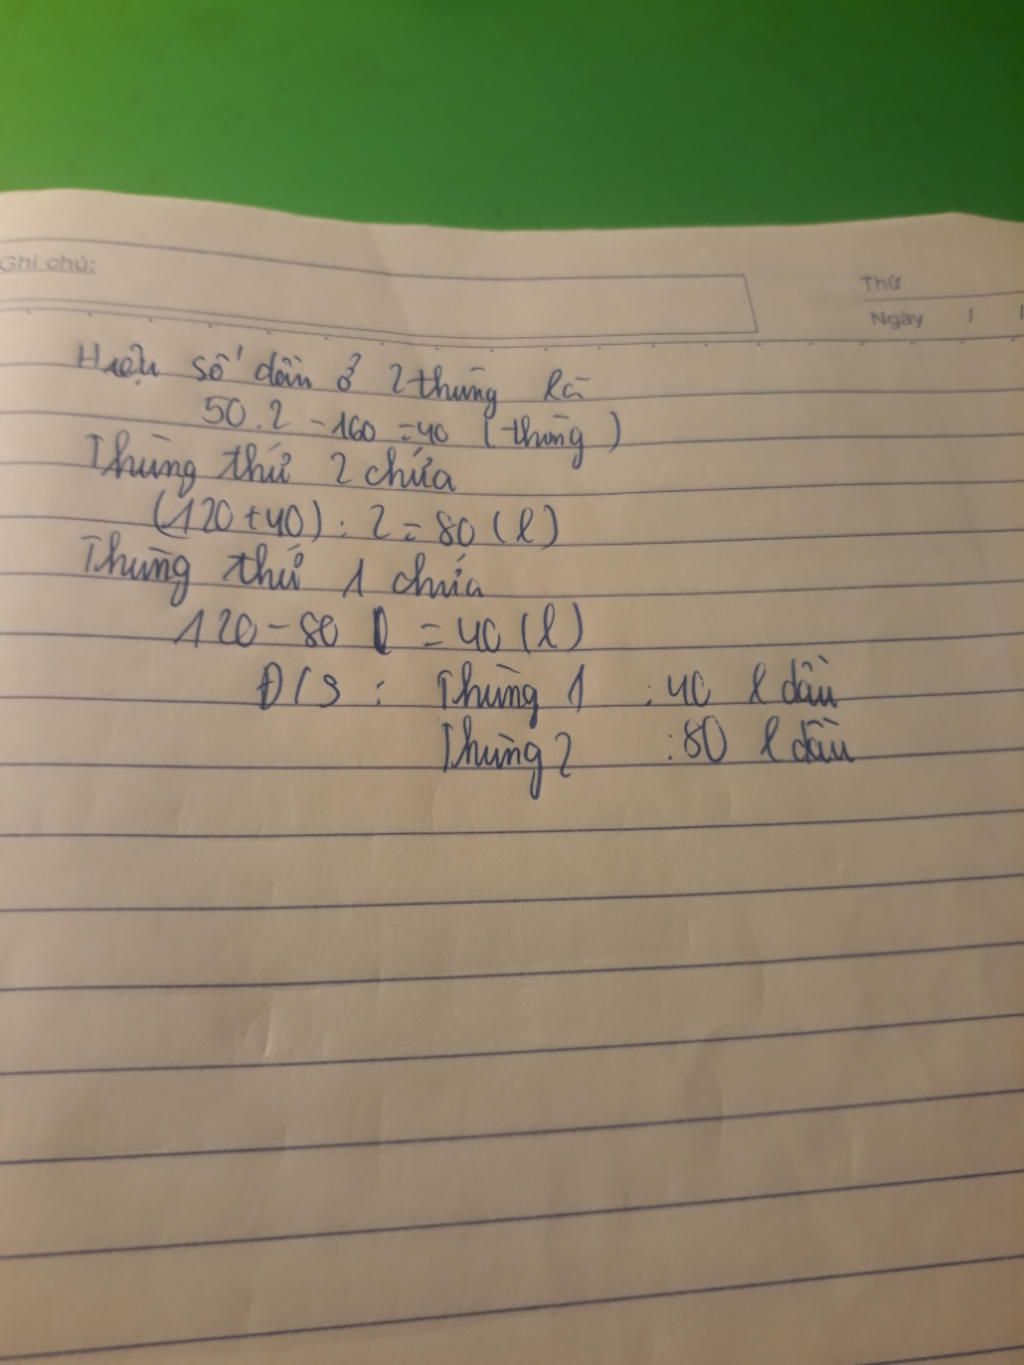 Ghi chú:
Thứ
Ngày / /
Hiệu số dầu ở 2 thùng là
50.2 - 160 = 40 (thùng)
Thùng thứ 2 chứa
(120 + 40) : 2 = 80 (l)
Thùng thứ 1 chứa
120 - 80 = 40 (l)
Đ/S : Thùng 1 : 40 l dầu
Thùng 2 : 80 l dầu